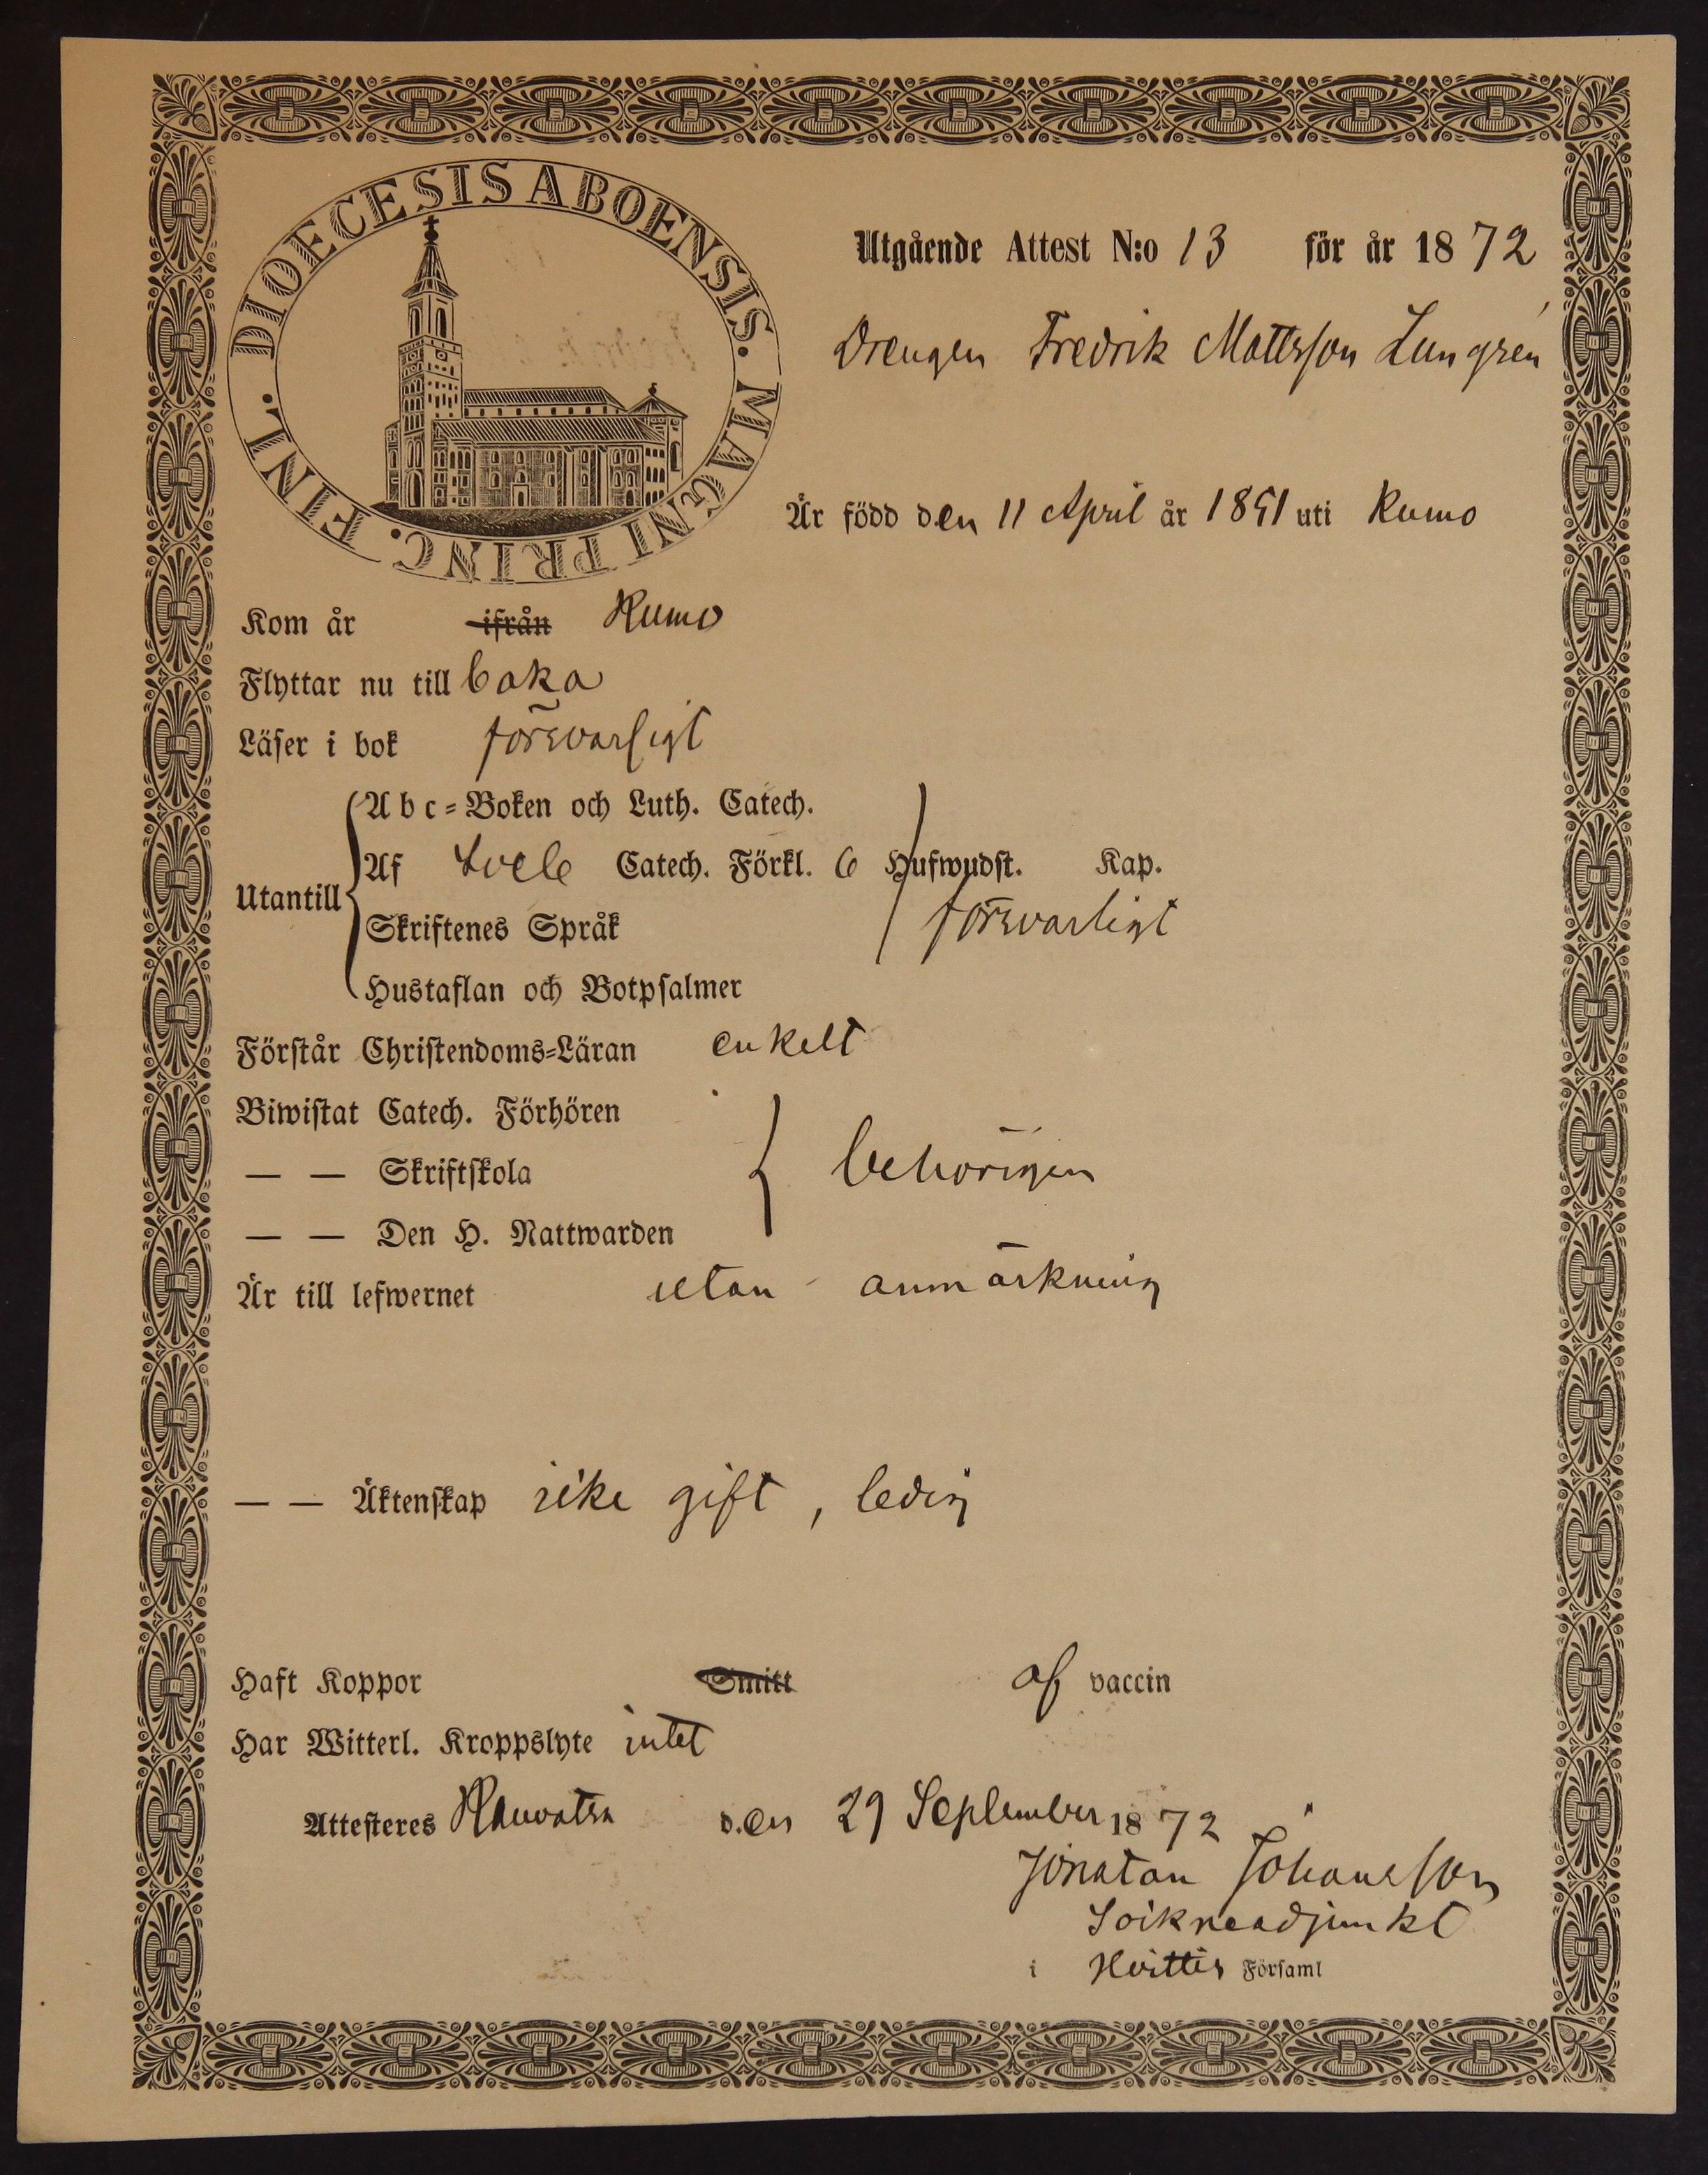 DIOECESIS ABOENSIS. MAGNI PRINC. FINL.
Utgående Attest N:o 13 för år 1872
Drengen Fredrik Mattsson Lungrén
Är född den 11 April år 1851 uti Kumo
Kom år ifrån Kumo
Flyttar nu till baka
Läser i bok försvarligt
Abc-Boken och Luth. Catech.
Af Catech. Förkl. 6 Hufwudst. Kap.
Utantill
Skriftenes Språk försvarligt
Hustaflan och Botpsalmer
Förstår Christendoms-Läran enkelt
Biwistat Catech. Förhören
— — Skriftskola behörigen
— — Den H. Nattwarden
Är till lefwernet utan anmärkning
— — Äktenskap icke gift, ledig
Haft Koppor Smitt af vaccin
Har Witterl. Kroppslyte intet
Attesteres den 29 September 1872
Jonatan Johansson
Sockneadjunkt
i Hvittis Församl